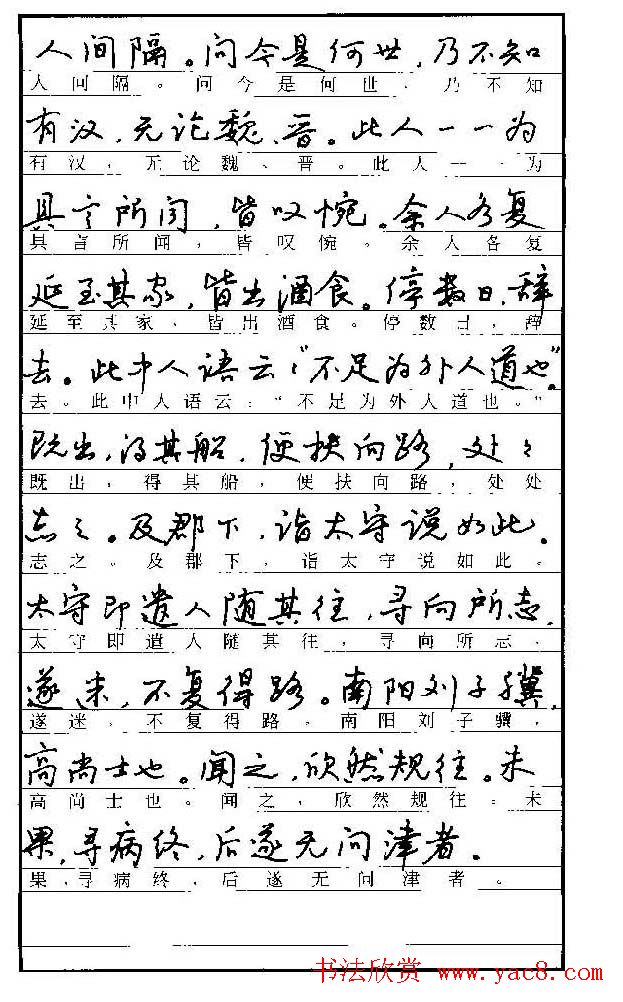 人间隔。问今是何世，乃不知
人间隔。问今是何世，乃不知
有汉，无论魏、晋。此人一一为
有汉，无论魏、晋。此人一一为
具言所闻，皆叹惋。余人各复
具言所闻，皆叹惋。余人各复
延至其家，皆出酒食。停数日，辞
延至其家，皆出酒食。停数日，辞
去。此中人语云：“不足为外人道也”。
去。此中人语云：“不足为外人道也。”
既出，得其船，便扶向路，处々
既出，得其船，便扶向路，处处
志之。及郡下，诣太守说如此。
志之。及郡下，诣太守说如此。
太守即遣人随其往，寻向所志，
太守即遣人随其往，寻向所志，
遂迷，不复得路。南阳刘子骥，
遂迷，不复得路。南阳刘子骥，
高尚士也。闻之，欣然规往。未
高尚士也。闻之，欣然规往。未
果，寻病终，后遂无问津者。
果，寻病终，后遂无问津者。
书法欣赏 www.yac8.com